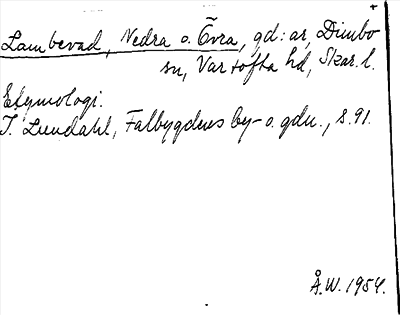 Lambevad, Nedra o. Övra, gd:ar, Dimbo
sn, Vartofta hd, Skar. l.
Etymologi.
I. Lundahl, Falbygdens by- o. gdn., s. 91.
Å.W. 1954.